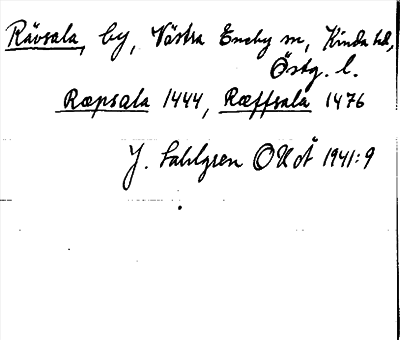 Rävsala, by, Västra Eneby sn, Kinda hd,
Östg. l.
Ræpsala 1444, Ræffsala 1476
J. Sahlgren OUÅ 1941:9